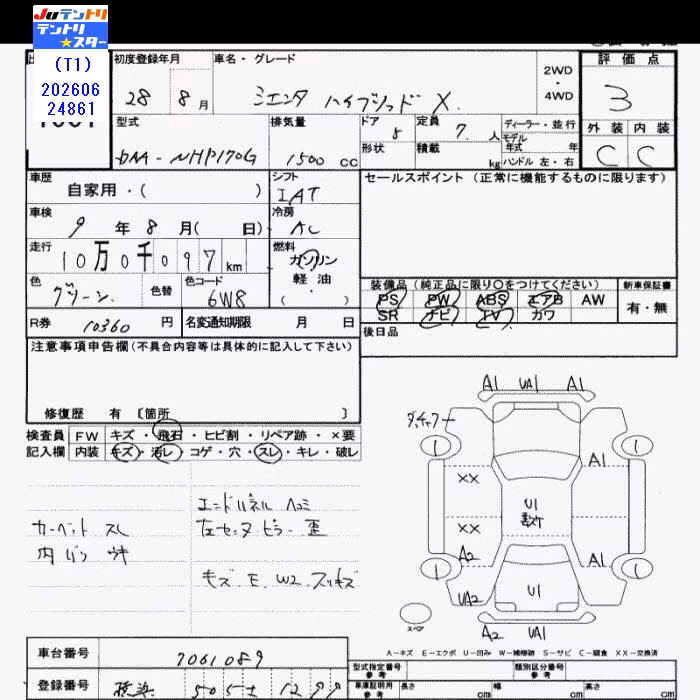 JUテントリ
テントリ★スター
(T1)
202606
24861
初度登録年月
28 8月
車名・グレード
シエンタ ハイブリッド X
2WD・4WD
評価点
3
外装 内装
C C
型式
DAA-NHP170G
排気量
1500 CC
ドア 5
定員 7 人
形状
積載 kg
ディーラー・並行
モデル年式 年
ハンドル 左・右
車歴
自家用・( )
シフト
IAT
セールスポイント (正常に機能するものに限ります)
車検
9年8月( 日)
冷房
AC
走行
10万0千097km
燃料
ガソリン
軽油
・( )
色
グリーン
色替
色コード
6W8
装備品 (純正品に限り○をつけてください)
新車保証書
PS PW ABS エアB AW
有・無
SR ナビ TV カワ
R券 10360円
名変通知期限 月 日
後日品
注意事項申告欄(不具合内容等は具体的に記入して下さい)
修復歴 有 [箇所 ]
検査員 FW キズ・飛石・ヒビ割・リペア跡・×要
記入欄 内装 キズ・汚レ・コゲ・穴・スレ・キレ・破レ
エンドパネル ヘコミ
カーペット スレ
左センターピラー 歪
キズ E W2 スリキズ
A1 UA1 A1
A1
XX
U1
XX
A2
A1
UA2
U1
スペア
A2 UA1
A-キズ E-エクボ U-凹み W-補修跡 S-サビ C-腐食 XX-交換済
車台番号
7061089
登録番号
横浜 505 12 99
型式指定番号 参考
類別区分番号 参考
車庫証明用 参考
長さ cm
幅 cm
高さ cm